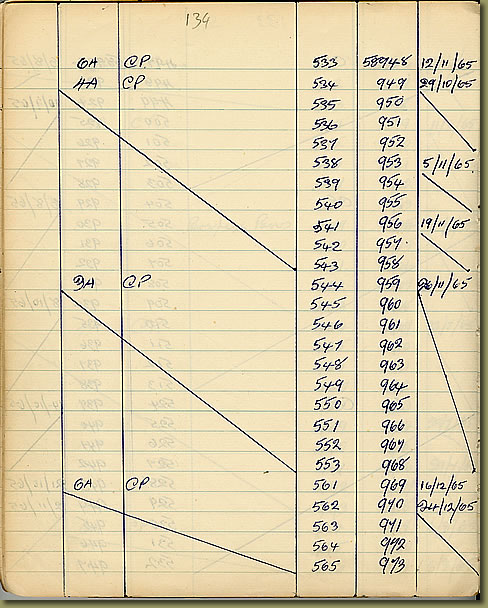 134
6A CP 533 58948 12/11/65
4A CP 534 949 29/10/65
535 950
536 951
537 952
538 953 5/11/65
539 954
540 955
541 956 19/11/65
542 957
543 958
9A CP 544 959 26/11/65
545 960
546 961
547 962
548 963
549 964
550 965
551 966
552 967
553 968
6A CP 561 969 16/12/65
562 970 24/12/65
563 971
564 972
565 973